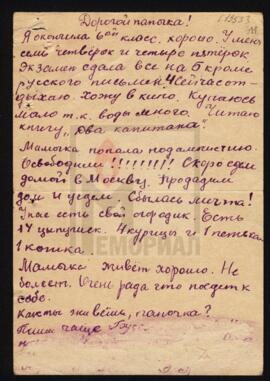 Дорогой папочка!
Я окончила 6ой класс. хорошо. У меня
семь четвёрок и четыре пятёрок.
Экзамен сдала все на 5 кроме
русского письмен. 4 Сейчас от-
дыхаю. хожу в кино. Купаюсь
мало т.к. воды много. Читаю
книгу „два капитана"
Мамочка попала под амнистию.
Освободили!!!!!!!! Скоро едем
домой в Москву. Продадим
дом и уедем. Сбылась мечта!
У нас есть свой огородик. Есть
14 цыпляток. 4 курицы и 1 петька
1 кошка.
МЕМОРИАЛ
Мамочка живёт хорошо. Не
болеет. Очень рада что поедет к
себе.
Как ты живёшь, папочка?
Пиши чаще